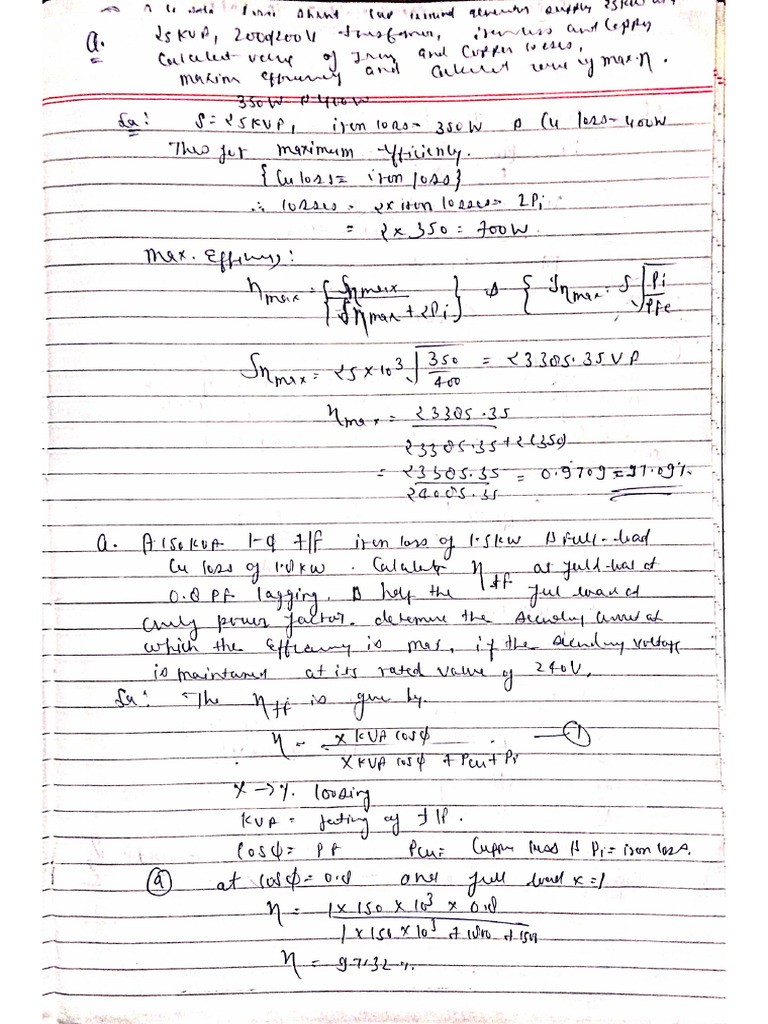 Q. 25 KVA, 2000/200V transformer, iron loss and Copper
Calculate value of Iron and Copper losses,
maxim Efficiency and Calculate value of max. η.
350W & 400W
Sol: S = 25KVA, iron loss = 350W & Cu loss = 400W
Thus for maximum efficiency.
{Cu loss = iron loss}
∴ losses = 2x iron losses = 2Pi
= 2 x 350 = 700W
Max. Efficiency:
ηmax = {Sηmax / Sηmax + 2Pi} & {Sηmax = S √Pi/Pfe
Sηmax = 25 x 10³ √350/400 = 23385.35 VA
ηmax = 23385.35
23385.35 + 2(350)
= 23385.35 = 0.9709 = 97.09%
24085.35
Q. A 150KVA 1-φ t/f iron loss of 1.5kw & Full-load
Cu loss of 1.8kw. Calculate η tf at full-load at
0.8 PF lagging, & half the full load at
unity power factor. determine the Secondary current at
which the Efficiency is max, if the secondary voltage
is maintained at its rated value of 240V.
Sol: The η tf is given by.
η = x KVA cosφ — ①
x KVA cosφ + Pcu + Pi
x → % loading
KVA = rating of t/f.
cosφ = Pf Pcu = Copper loss & Pi = iron loss.
ⓐ at cosφ = 0.8 and full load x = 1
η = 1 x 150 x 10³ x 0.8
1 x 150 x 10³ + 1800 + 1500
η = 97.32%